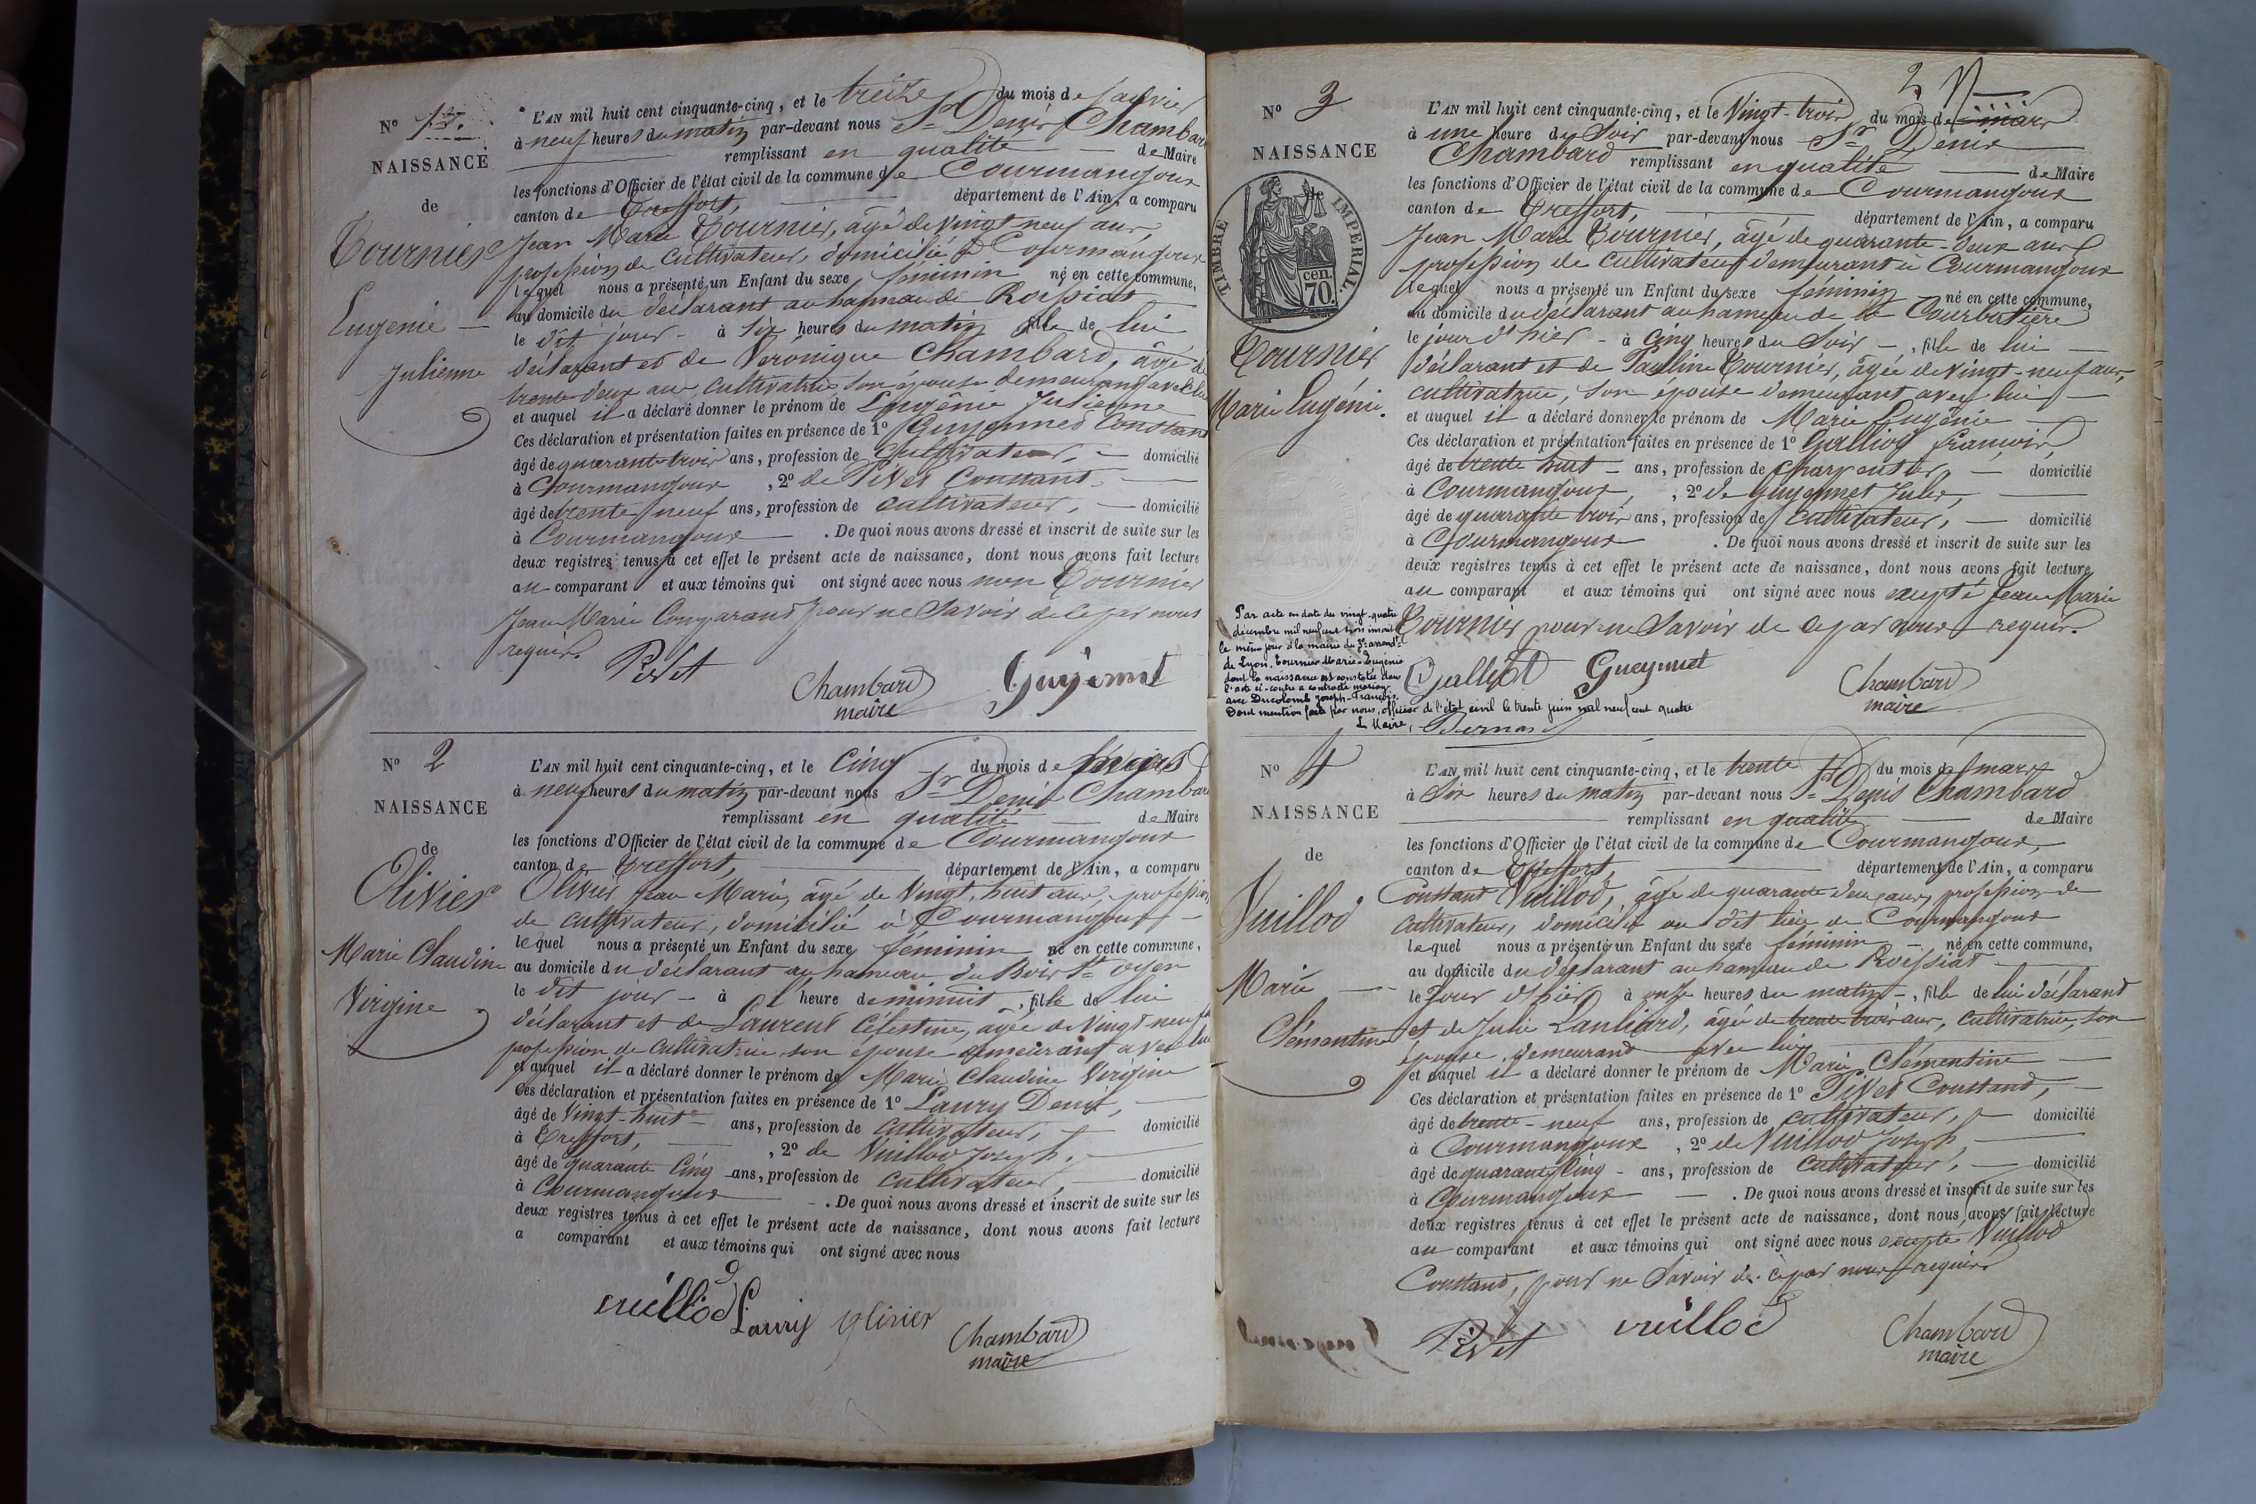 N° 1er.
NAISSANCE
de
Tournier
Eugénie
Julienne
L'AN mil huit cent cinquante-cinq, et le treize du mois de Janvier
à neuf heures du matin par-devant nous Sr Denis Chambard
remplissant en qualité de Maire
les fonctions d'Officier de l'état civil de la commune de Courmangoux
canton de Treffort, département de l'Ain, a comparu
Jean Marie Tournier, âgé de vingt neuf ans,
profession de cultivateur, domicilié à Courmangoux
lequel nous a présenté un Enfant du sexe féminin né en cette commune,
au domicile du déclarant au hameau de Roissiat
le dit jour à six heures du matin fille de lui
déclarant et de Véronique Chambard, âgé de
trente deux ans, cultivatrice, son épouse demeurand avec lui
et auquel il a déclaré donner le prénom de Eugénie Julienne
Ces déclaration et présentation faites en présence de 1° Guyennet Constant
âgé de quarante trois ans, profession de Cultivateur, domicilié
à Courmangoux, 2° de Pivet Constant,
âgé de trente neuf ans, profession de cultivateur, domicilié
à Courmangoux. De quoi nous avons dressé et inscrit de suite sur les
deux registres tenus à cet effet le présent acte de naissance, dont nous avons fait lecture
au comparant et aux témoins qui ont signé avec nous non Tournier
Jean Marie Comparant pour ne Savoir de ce par nous
requis.
Pivet Chambard Guyennet
maire
N° 2
NAISSANCE
de
Olivier
Marie Claudine
Virgine
L'AN mil huit cent cinquante-cinq, et le Cinq du mois de
à neuf heures du matin par-devant nous Sr Denis Chambard
remplissant en qualité de Maire
les fonctions d'Officier de l'état civil de la commune de Courmangoux
canton de Treffort, département de l'Ain, a comparu
Olivier Jean Marie, âgé de Vingt, huit ans, profession
de cultivateur, domicilié à Courmangoux
lequel nous a présenté un Enfant du sexe féminin né en cette commune,
au domicile du déclarant au hameau du Bois
le dit jour à l'heure de minuit, fille de lui
déclarant et de Laurent Célestine, âgée de Vingt neuf
profession de Cultivatrice son épouse demeurant avec lui
et auquel il a déclaré donner le prénom de Marie Claudine Virgine
Ces déclaration et présentation faites en présence de 1° Laury Denis,
âgé de Vingt-huit ans, profession de cultivateur, domicilié
à Treffort, 2° de Vuillod Joseph,
âgé de quarante Cinq ans, profession de cultivateur, domicilié
à Courmangoux. De quoi nous avons dressé et inscrit de suite sur les
deux registres tenus à cet effet le présent acte de naissance, dont nous avons fait lecture
a comparant et aux témoins qui ont signé avec nous
vuillod Laury olivier
Chambard
maire
2
N° 3
NAISSANCE
TIMBRE IMPERIAL.
cen.
70.
Tournier
Marie Eugénie.
L'AN mil huit cent cinquante-cinq, et le Vingt-trois du mois de mars
à une heure du Soir par-devant nous Sr Denis
Chambard remplissant en qualité de Maire
les fonctions d'Officier de l'état civil de la commune de Courmangoux
canton de Treffort, département de l'Ain, a comparu
Jean Marie Tournier, âgé de quarante-deux ans
profession de cultivateur demeurant à Courmangoux
lequel nous a présenté un Enfant du sexe féminin né en cette commune,
au domicile du déclarant au hameau de la Courbatière
le jour d'hier à Cinq heures du Soir, fille de lui
déclarant et de Pauline Tournier, âgée de vingt-neuf ans,
cultivatrice, son épouse demeurant avec lui
et auquel il a déclaré donner le prénom de Marie Eugénie
Ces déclaration et présentation faites en présence de 1° Galliot françois,
âgé de trente huit ans, profession de charpentier, domicilié
à Courmangoux, 2° de guyennet Jules,
âgé de quarante trois ans, profession de Cultivateur, domicilié
à Courmangoux. De quoi nous avons dressé et inscrit de suite sur les
deux registres tenus à cet effet le présent acte de naissance, dont nous avons fait lecture
au comparant et aux témoins qui ont signé avec nous excepté Jean Marie
Tournier pour ne Savoir de ce par nous requis.
Galliot Gueynnet Chambard
maire
Par acte en date du vingt-quatre
décembre mil neuf cent trois inscrit
le même jour à la mairie du 3e arrondt
de Lyon, Tournier Marie-Eugénie
dont la naissance est constatée dans
l'acte ci-contre a contracté mariage
avec Ducolomb Joseph-François.
Dont mention faite par nous, officier de l'état civil le trente juin mil neuf cent quatre
Le Maire,
N° 4
NAISSANCE
de
Vuillod
Marie
Clémentine
L'AN mil huit cent cinquante-cinq, et le trente du mois de mars
à Six heures du matin par-devant nous Sr Denis Chambard
remplissant en qualité de Maire
les fonctions d'Officier de l'état civil de la commune de Courmangoux,
canton de Treffort, département de l'Ain, a comparu
Constant Vuillod, âgé de quarante deux ans, profession de
cultivateur, domicilié au dit lieu de Courmangoux
lequel nous a présenté un Enfant du sexe féminin né en cette commune,
au domicile du déclarant au hameau de Roissiat
le Jour d'hier à onze heures du matin, fille de lui déclarand
et de Julie Lauliard, âgée de trente trois ans, cultivatrice, son
épouse demeurand avec lui
et auquel il a déclaré donner le prénom de Marie Clémentine
Ces déclaration et présentation faites en présence de 1° Pivet Constand,
âgé de trente-neuf ans, profession de cultivateur, domicilié
à Courmangoux, 2° de Vuillod Joseph,
âgé de quarante Cinq ans, profession de Cultivateur, domicilié
à Courmangoux. De quoi nous avons dressé et inscrit de suite sur les
deux registres tenus à cet effet le présent acte de naissance, dont nous avons fait lecture
au comparant et aux témoins qui ont signé avec nous excepté Vuillod
Constand, pour ne Savoir de ce par nous requis
Pivet vuillod Chambard
maire